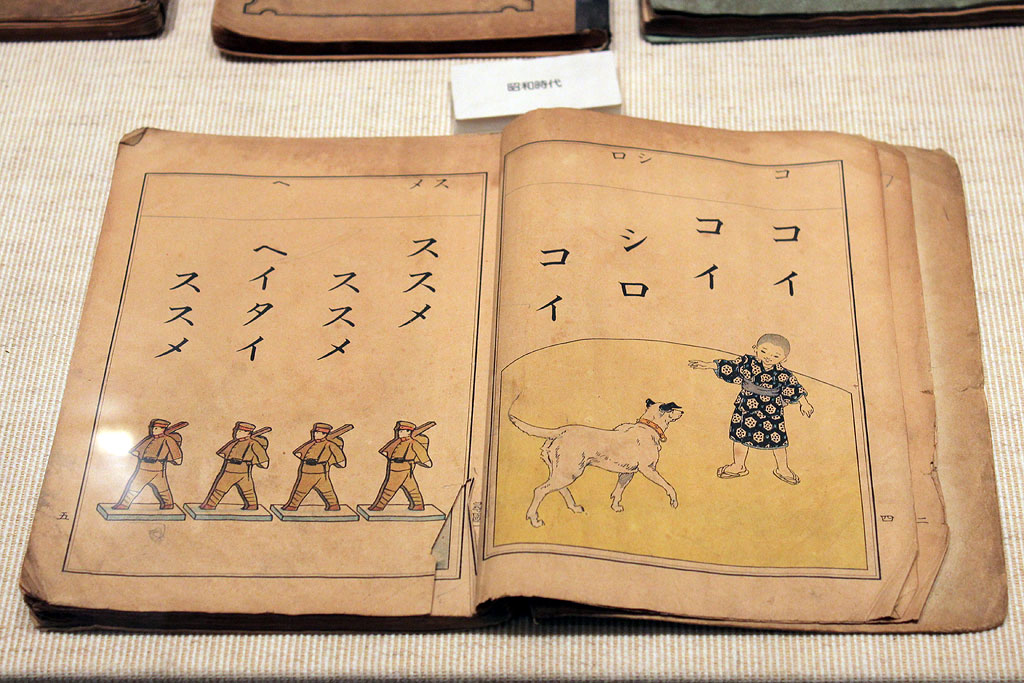 昭和時代
コ
シロ
コイ
コイ
シロ
コイ
四
二
スメ
ヘ
ススメ
ススメ
ヘイタイ
ススメ
五